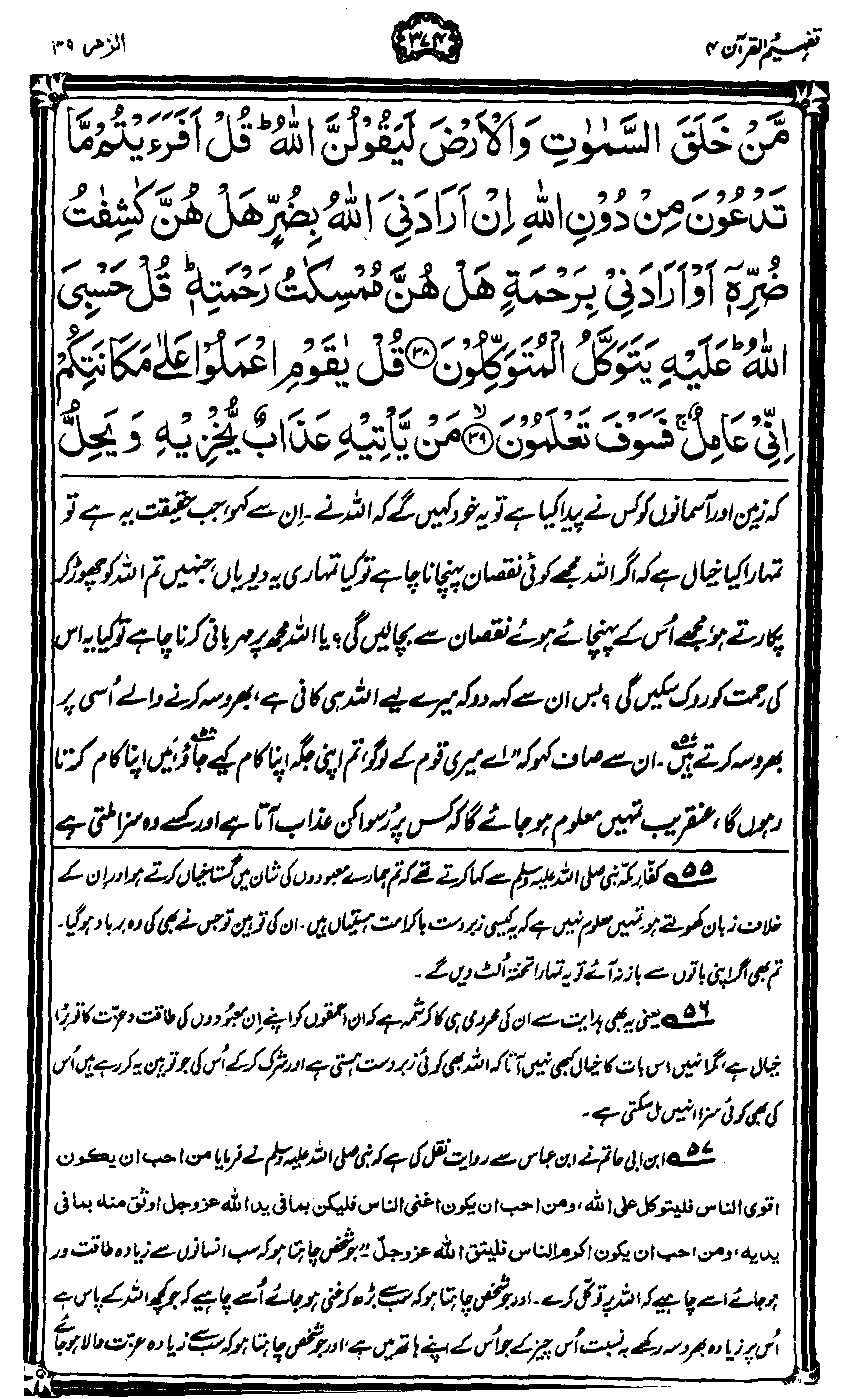 تفہیم القرآن ۴
۳۷۴
الزمر ۳۹
مَّنْ خَلَقَ السَّمٰوٰتِ وَالْاَرْضَ لَيَقُوْلُنَّ اللّٰهُ ؕ قُلْ اَفَرَءَيْتُمْ مَّا
تَدْعُوْنَ مِنْ دُوْنِ اللّٰهِ اِنْ اَرَادَنِيَ اللّٰهُ بِضُرٍّ هَلْ هُنَّ كٰشِفٰتُ
ضُرِّهٖۤ اَوْ اَرَادَنِيْ بِرَحْمَةٍ هَلْ هُنَّ مُمْسِكٰتُ رَحْمَتِهٖ ؕ قُلْ حَسْبِيَ
اللّٰهُ ؕ عَلَيْهِ يَتَوَكَّلُ الْمُتَوَكِّلُوْنَ ﴿۳۸﴾ قُلْ يٰقَوْمِ اعْمَلُوْا عَلٰى مَكَانَتِكُمْ
اِنِّيْ عَامِلٌ ۚ فَسَوْفَ تَعْلَمُوْنَ ﴿۳۹﴾ مَنْ يَّاْتِيْهِ عَذَابٌ يُّخْزِيْهِ وَيَحِلُّ
کہ زمین اور آسمانوں کو کس نے پیدا کیا ہے تو یہ خود کہیں گے کہ اللہ نے۔ اِن سے کہو، جب حقیقت یہ ہے تو
تمہارا کیا خیال ہے کہ اگر اللہ مجھے کوئی نقصان پہنچانا چاہے تو کیا تمہاری یہ دیویاں، جنہیں تم اللہ کو چھوڑ کر
پکارتے ہو، مجھے اُس کے پہنچائے ہوئے نقصان سے بچا لیں گی؟ یا اللہ مجھ پر مہربانی کرنا چاہے تو کیا یہ اس
کی رحمت کو روک سکیں گی؟ بس ان سے کہہ دو کہ میرے لیے اللہ ہی کافی ہے، بھروسہ کرنے والے اُسی پر
بھروسہ کرتے ہیں۵۷۔ ان سے صاف کہو کہ "اے میری قوم کے لوگو، تم اپنی جگہ اپنا کام کیے جاؤ۵۸، میں اپنا کام کرتا
رہوں گا، عنقریب تمہیں معلوم ہو جائے گا کہ کس پر رُسوا کن عذاب آتا ہے اور کسے وہ سزا ملتی ہے
۵۵ کفار مکہ نبی صلی اللہ علیہ وسلم سے کہا کرتے تھے کہ تم ہمارے معبودوں کی شان میں گستاخیاں کرتے ہو اور ان کے
خلاف زبان کھولتے ہو، تمہیں معلوم نہیں ہے کہ یہ کیسی زبردست باکرامت ہستیاں ہیں۔ ان کی توہین تو جس نے بھی کی وہ برباد ہو گیا۔
تم بھی اگر اپنی باتوں سے باز نہ آئے تو یہ تمہارا تختہ اُلٹ دیں گے۔
۵۶ یعنی یہ بھی ہدایت سے ان کی محرومی ہی کا کرشمہ ہے کہ ان احمقوں کو اپنے اِن معبودوں کی طاقت و عزت کا تو بڑا
خیال ہے، مگر انہیں اس بات کا خیال کبھی نہیں آتا کہ اللہ بھی کوئی زبردست ہستی ہے اور شرک کر کے اُس کی جو توہین یہ کر رہے ہیں اُس
کی بھی کوئی سزا انہیں مل سکتی ہے۔
۵۷ ابن ابی حاتم نے ابن عباس سے روایت نقل کی ہے کہ نبی صلی اللہ علیہ وسلم نے فرمایا من احب ان یکون
اقوی الناس فلیتوکل علی اللہ، ومن احب ان یکون اغنی الناس فلیکن بما فی ید اللہ عزوجل اوثق منہ بما فی
یدیہ، ومن احب ان یکون اکرم الناس فلیتق اللہ عزوجل "جو شخص چاہتا ہو کہ سب انسانوں سے زیادہ طاقت ور
ہو جائے اسے چاہیے کہ اللہ پر توکل کرے۔ اور جو شخص چاہتا ہو کہ سب سے بڑھ کر غنی ہو جائے اُسے چاہیے کہ جو کچھ اللہ کے پاس ہے
اُس پر زیادہ بھروسہ رکھے بہ نسبت اُس چیز کے جو اُس کے اپنے ہاتھ میں ہے، اور جو شخص چاہتا ہو کہ سب سے زیادہ عزت والا ہو جائے